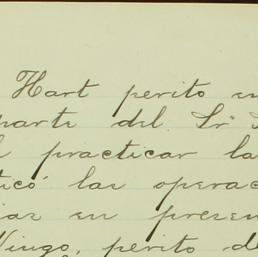 Hart perito en
parte del Sr.
practicar la
ticó las operac
ias en presen
Wingo, perito de